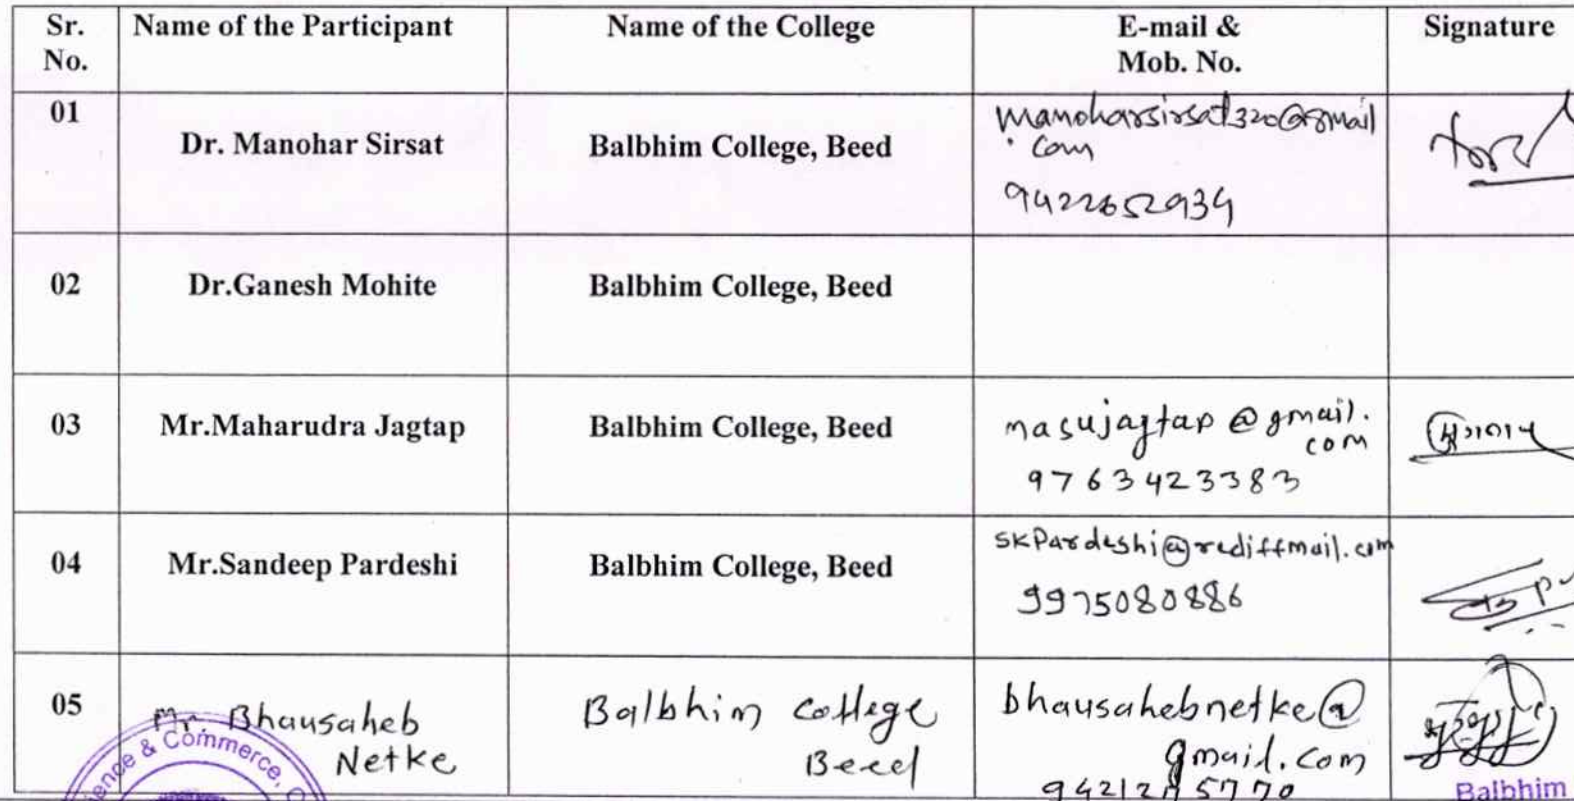 Sr. No. Name of the Participant Name of the College E-mail & Mob. No. Signature
01 Dr. Manohar Sirsat Balbhim College, Beed manoharsirsat320@gmail
.com
9422652934
02 Dr.Ganesh Mohite Balbhim College, Beed
03 Mr.Maharudra Jagtap Balbhim College, Beed masujagtap@gmail.
com
9763423383
04 Mr.Sandeep Pardeshi Balbhim College, Beed skpardeshi@rediffmail.com
9975080886
05 Mr Bhausaheb Balbhim College bhausahebnetke@
Netke Beed gmail.com
Science & Commerce,
Balbhim